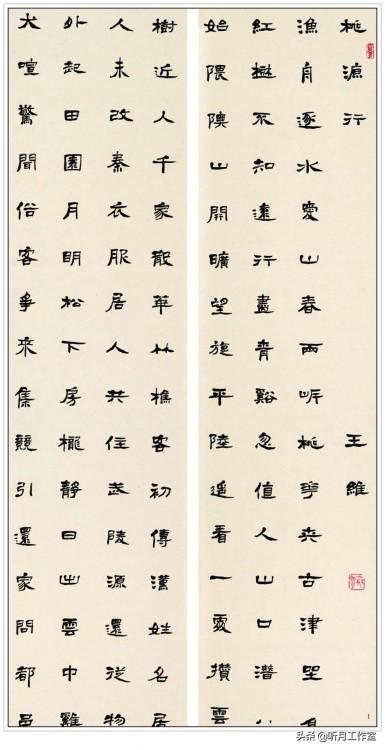 桃源行 王維
漁舟逐水愛山春兩岸桃華夾古津坐
紅樹不知遠行盡青谿忽值人山口潛
始隈隩山開曠望旋平陸遙看一處攢雲
樹近入千家散華竹樵客初傳漢姓名居
人未改秦衣服居人共住武陵源還從物
外起田園月明松下房櫳靜日出雲中雞
犬喧驚聞俗客爭來集競引還家問都邑
1
头条 @听月工作室